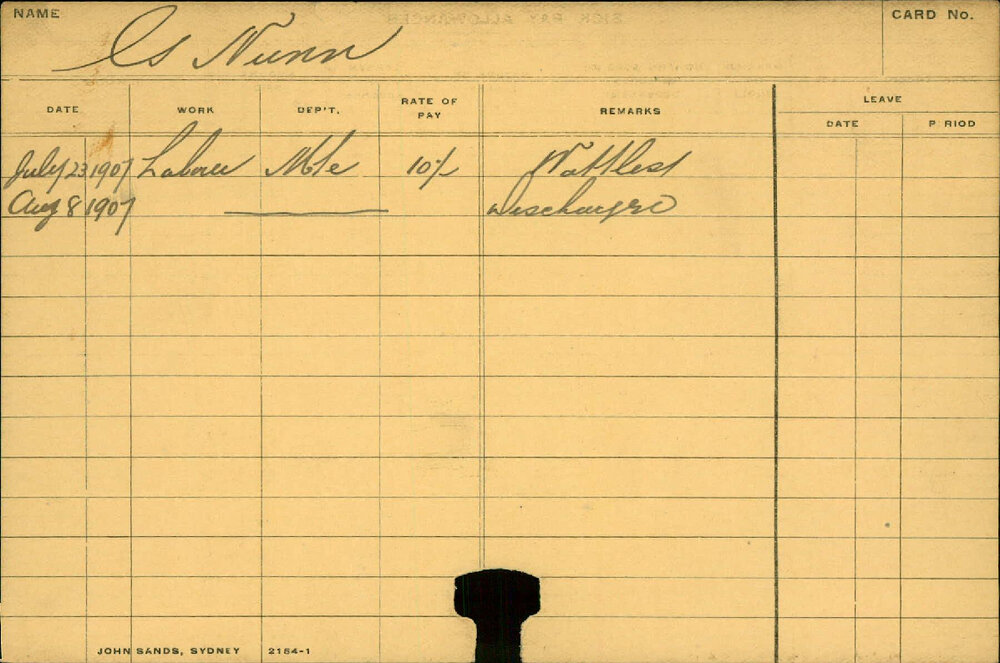 NAME
Nunn
CARD No.
DATE WORK DEP'T. RATE OF PAY REMARKS LEAVE
DATE P RIOD
July 23 1907 Labour Mte 10/- Wattles
Aug 8 1907 Discharged
JOHN SANDS, SYDNEY 2154-1